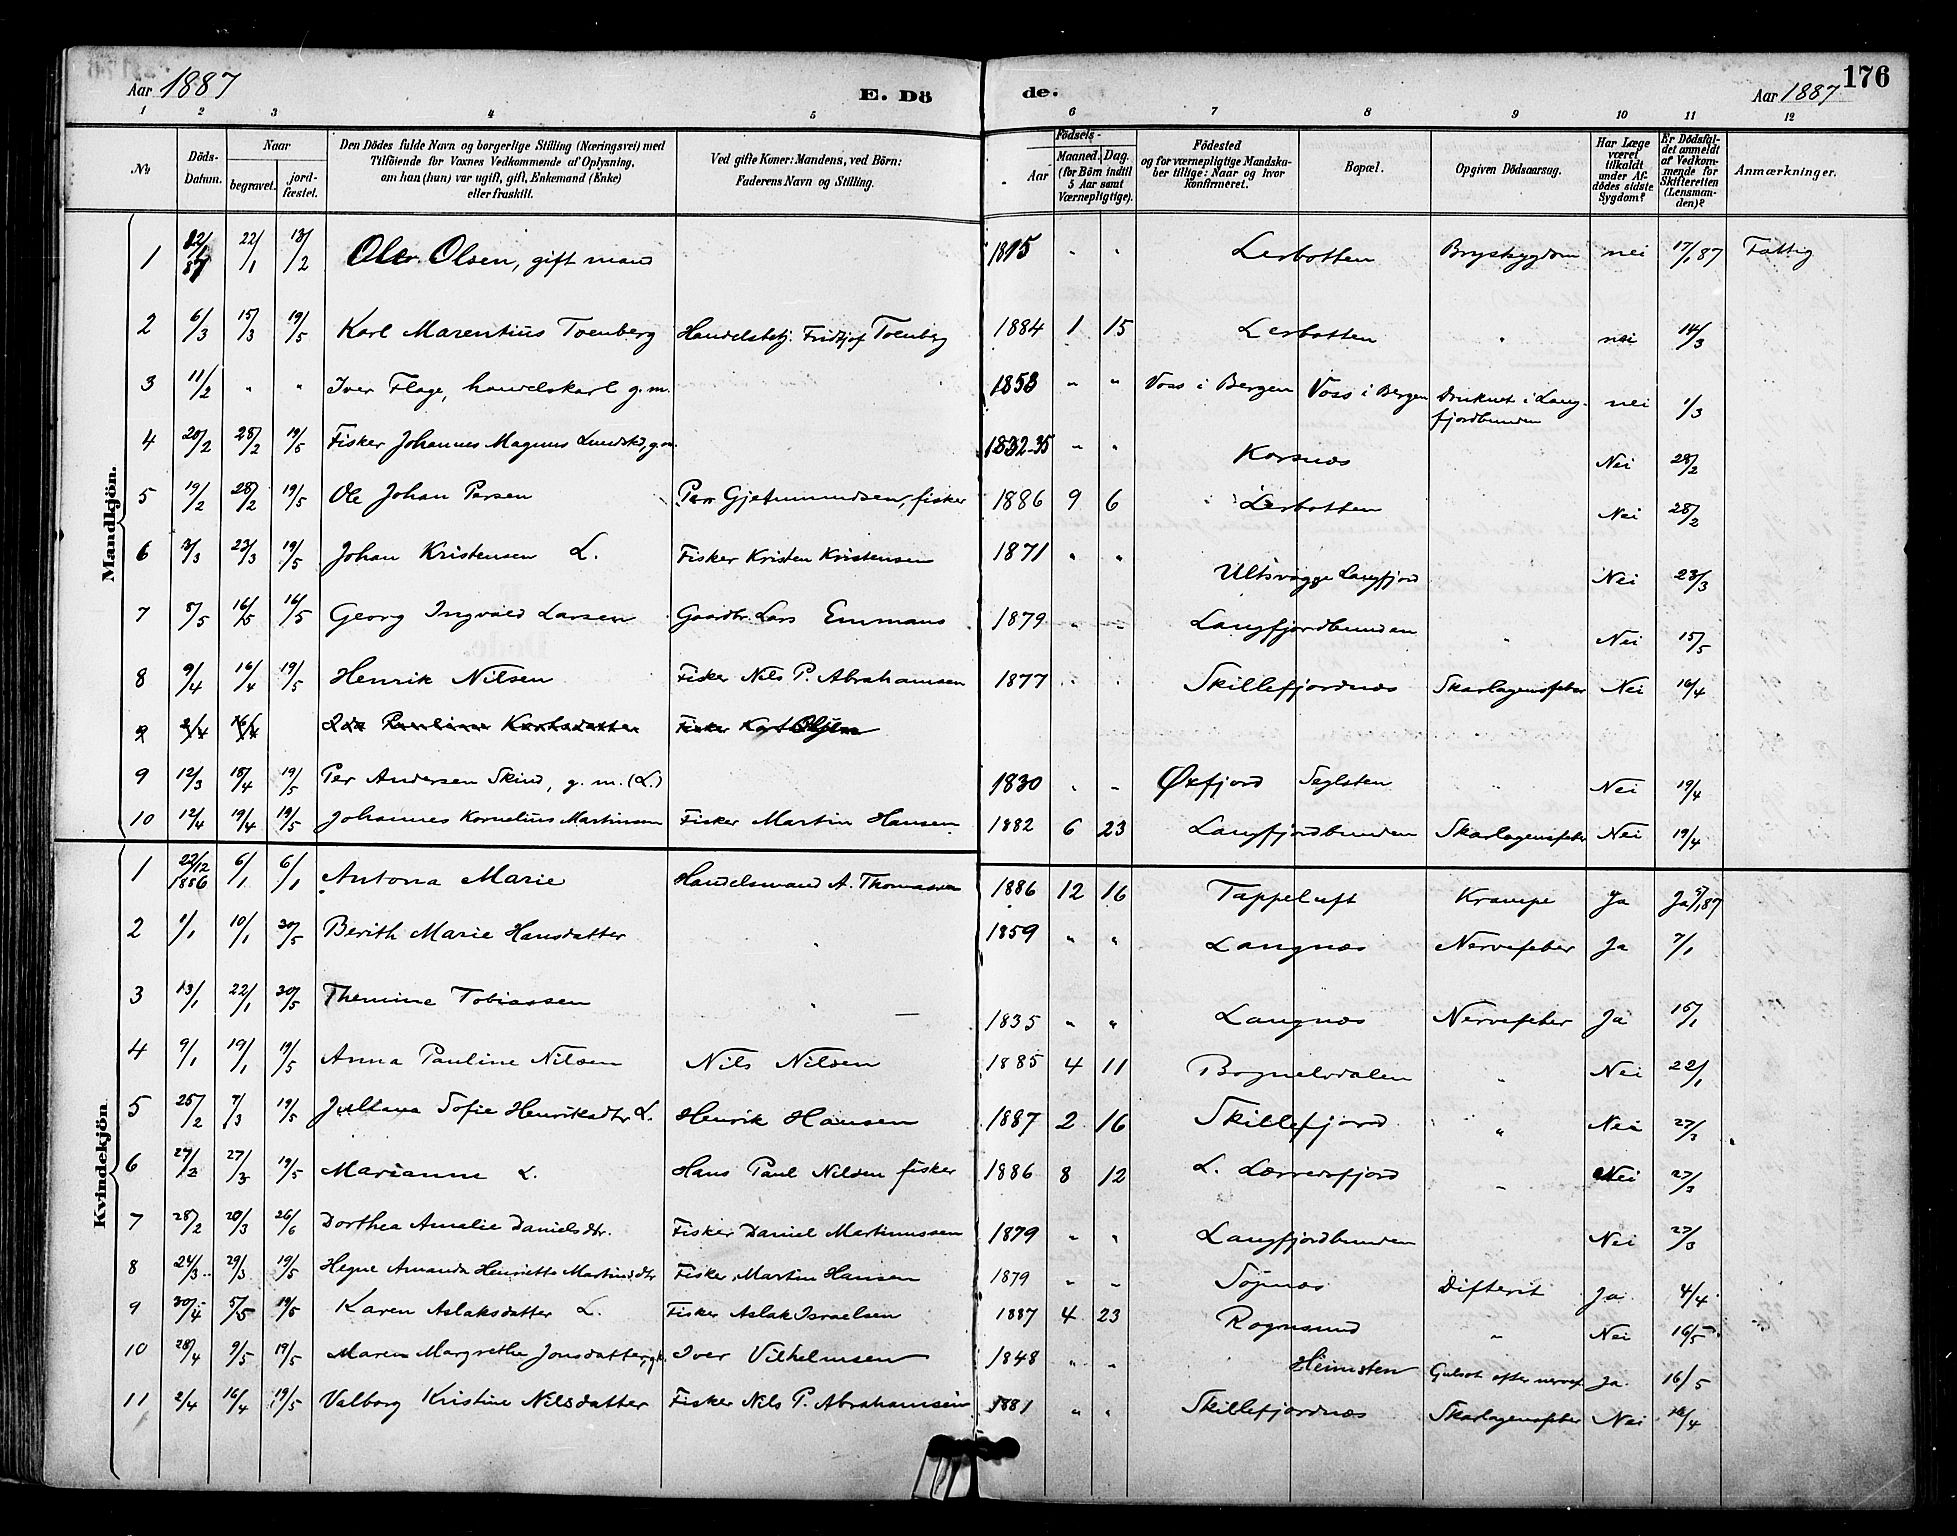 Aar 1887
E. Dö
de.
Aar 1887
176
1 2 3 4 5 6 7 8 9 10 11 12
No
Döds-Datum.
Naar
begravet.
jord-fæstet.
Den Dödes fulde Navn og borgerlige Stilling (Næringsvei) med
Tilföiende for Voxnes Vedkommende af Oplysning,
om han (hun) var ugift, gift, Enkemand (Enke)
eller fraskilt.
Ved gifte Koner: Mandens, ved Börn:
Faderens Navn og Stilling.
Födsels-
Aar
Maaned.
Dag.
(for Börn indtil
5 Aar samt
Værnepligtige).
Födested
og for værnepligtige Mandska-
ber tillige: Naar og hvor
konfirmeret.
Bopæl.
Opgiven Dödsaarsag.
Har Læge
været
tilkaldt
under Af-
dödes sidste
Sygdom?
Er Dödsfal-
det anmeldt
af Vedkom-
mende for
Skifteretten
(Lensman-
den)?
Anmærkninger.
Mandkjön.
1 12/1 87 22/1 13/2 Ole Olsen, gift mand 1815 " " Lerbotten Brystsygdom nei 17/1 87 Fattig
2 6/3 15/3 19/5 Karl Marentius Toenberg Handelsbetj. Fridtjof Toenberg 1884 1 15 Lerbotten " nei 14/3
3 11/2 " " Iver Flage, handelskarl g.m. 1853 " " Voss i Bergen Voss i Bergen Druknet i Lang-
fjordbunden nei 1/3
4 20/2 28/2 19/5 Fisker Johannes Magnus g.m. 1832-35 " " Korsnes Nei 28/2
5 19/2 28/2 19/5 Ole Johan Persen Per Gjetmundsen, fisker 1886 9 6 " Lerbotten Nei 28/2
6 3/3 23/3 19/5 Johan Kristensen L. Fisker Kristen Kristensen 1871 " " Ultsvagge Langfjord Nei 23/3
7 8/5 16/5 16/5 Georg Ingvald Larsen Gaardbr. Lars Emmaus 1879 " " Langfjordbunden " Nei 15/5
8 9/4 16/4 19/5 Henrik Nilsen Fisker Nils P. Abrahamsen 1877 " " Skillefjordnes Skarlagensfeber Nei 16/4
9 2/4 16/4 Ida Pauline Karlsdatter Fisker Karl Olsen
9 12/3 18/4 19/5 Per Andersen Skind, g. m. (L.) 1830 " " Øxfjord Seglsten " Nei 19/4
10 12/4 19/4 19/5 Johannes Kornelius Martinsen Fisker Martin Hansen 1882 6 23 Langfjordbunden Skarlagensfeber Nei 19/4
Kvindekjön
1 22/12 1886 6/1 6/1 Antona Marie Handelsmand A. Thomassen 1886 12 16 Tappeluft Krampe Ja Ja 5/1 87
2 1/1 10/1 30/5 Berith Marie Hansdatter " 1859 " " Langnes Nervefeber Ja 7/1
3 13/1 22/1 30/5 Themine Tobiassen " 1835 " " Langnes Nervefeber Ja 15/1
4 9/1 19/1 19/5 Anna Pauline Nilsen Nils Nilsen 1885 4 11 Bognelvdalen " Nei 22/1
5 25/2 7/3 19/5 Juliana Sofie Henriksdtr. L. Henrik Hansen 1887 2 16 Skillefjord " Nei 27/3
6 27/2 27/3 19/5 Marianne L. Hans Paul Nilsen fisker 1886 8 12 L. Lerresfjord " Nei 27/3
7 28/2 20/3 26/6 Dorthea Amalie Danielsdtr. Fisker Daniel Martinussen 1879 " " Langfjordbunden Nei 27/3
8 24/3 29/3 19/5 Hegne Amanda Henriette Martinsdtr Fisker Martin Hansen 1879 " " Søpnes Difterit Ja 4/4
9 30/4 5/5 19/5 Karen Aslaksdatter L. Fisker Aslak Israelsen 1887 4 23 Rognsund " Nei 16/5
10 28/4 9/5 19/5 Maren Margrethe Jonsdatter, gk. Iver Vilhelmsen 1848 " " Heimsten Gulsot efter nervef. Ja 16/5
11 2/4 16/4 19/5 Valborg Kristine Nilsdatter Fisker Nils P. Abrahamsen 1881 " " Skillefjordnes Skarlagensfeber Nei 16/4